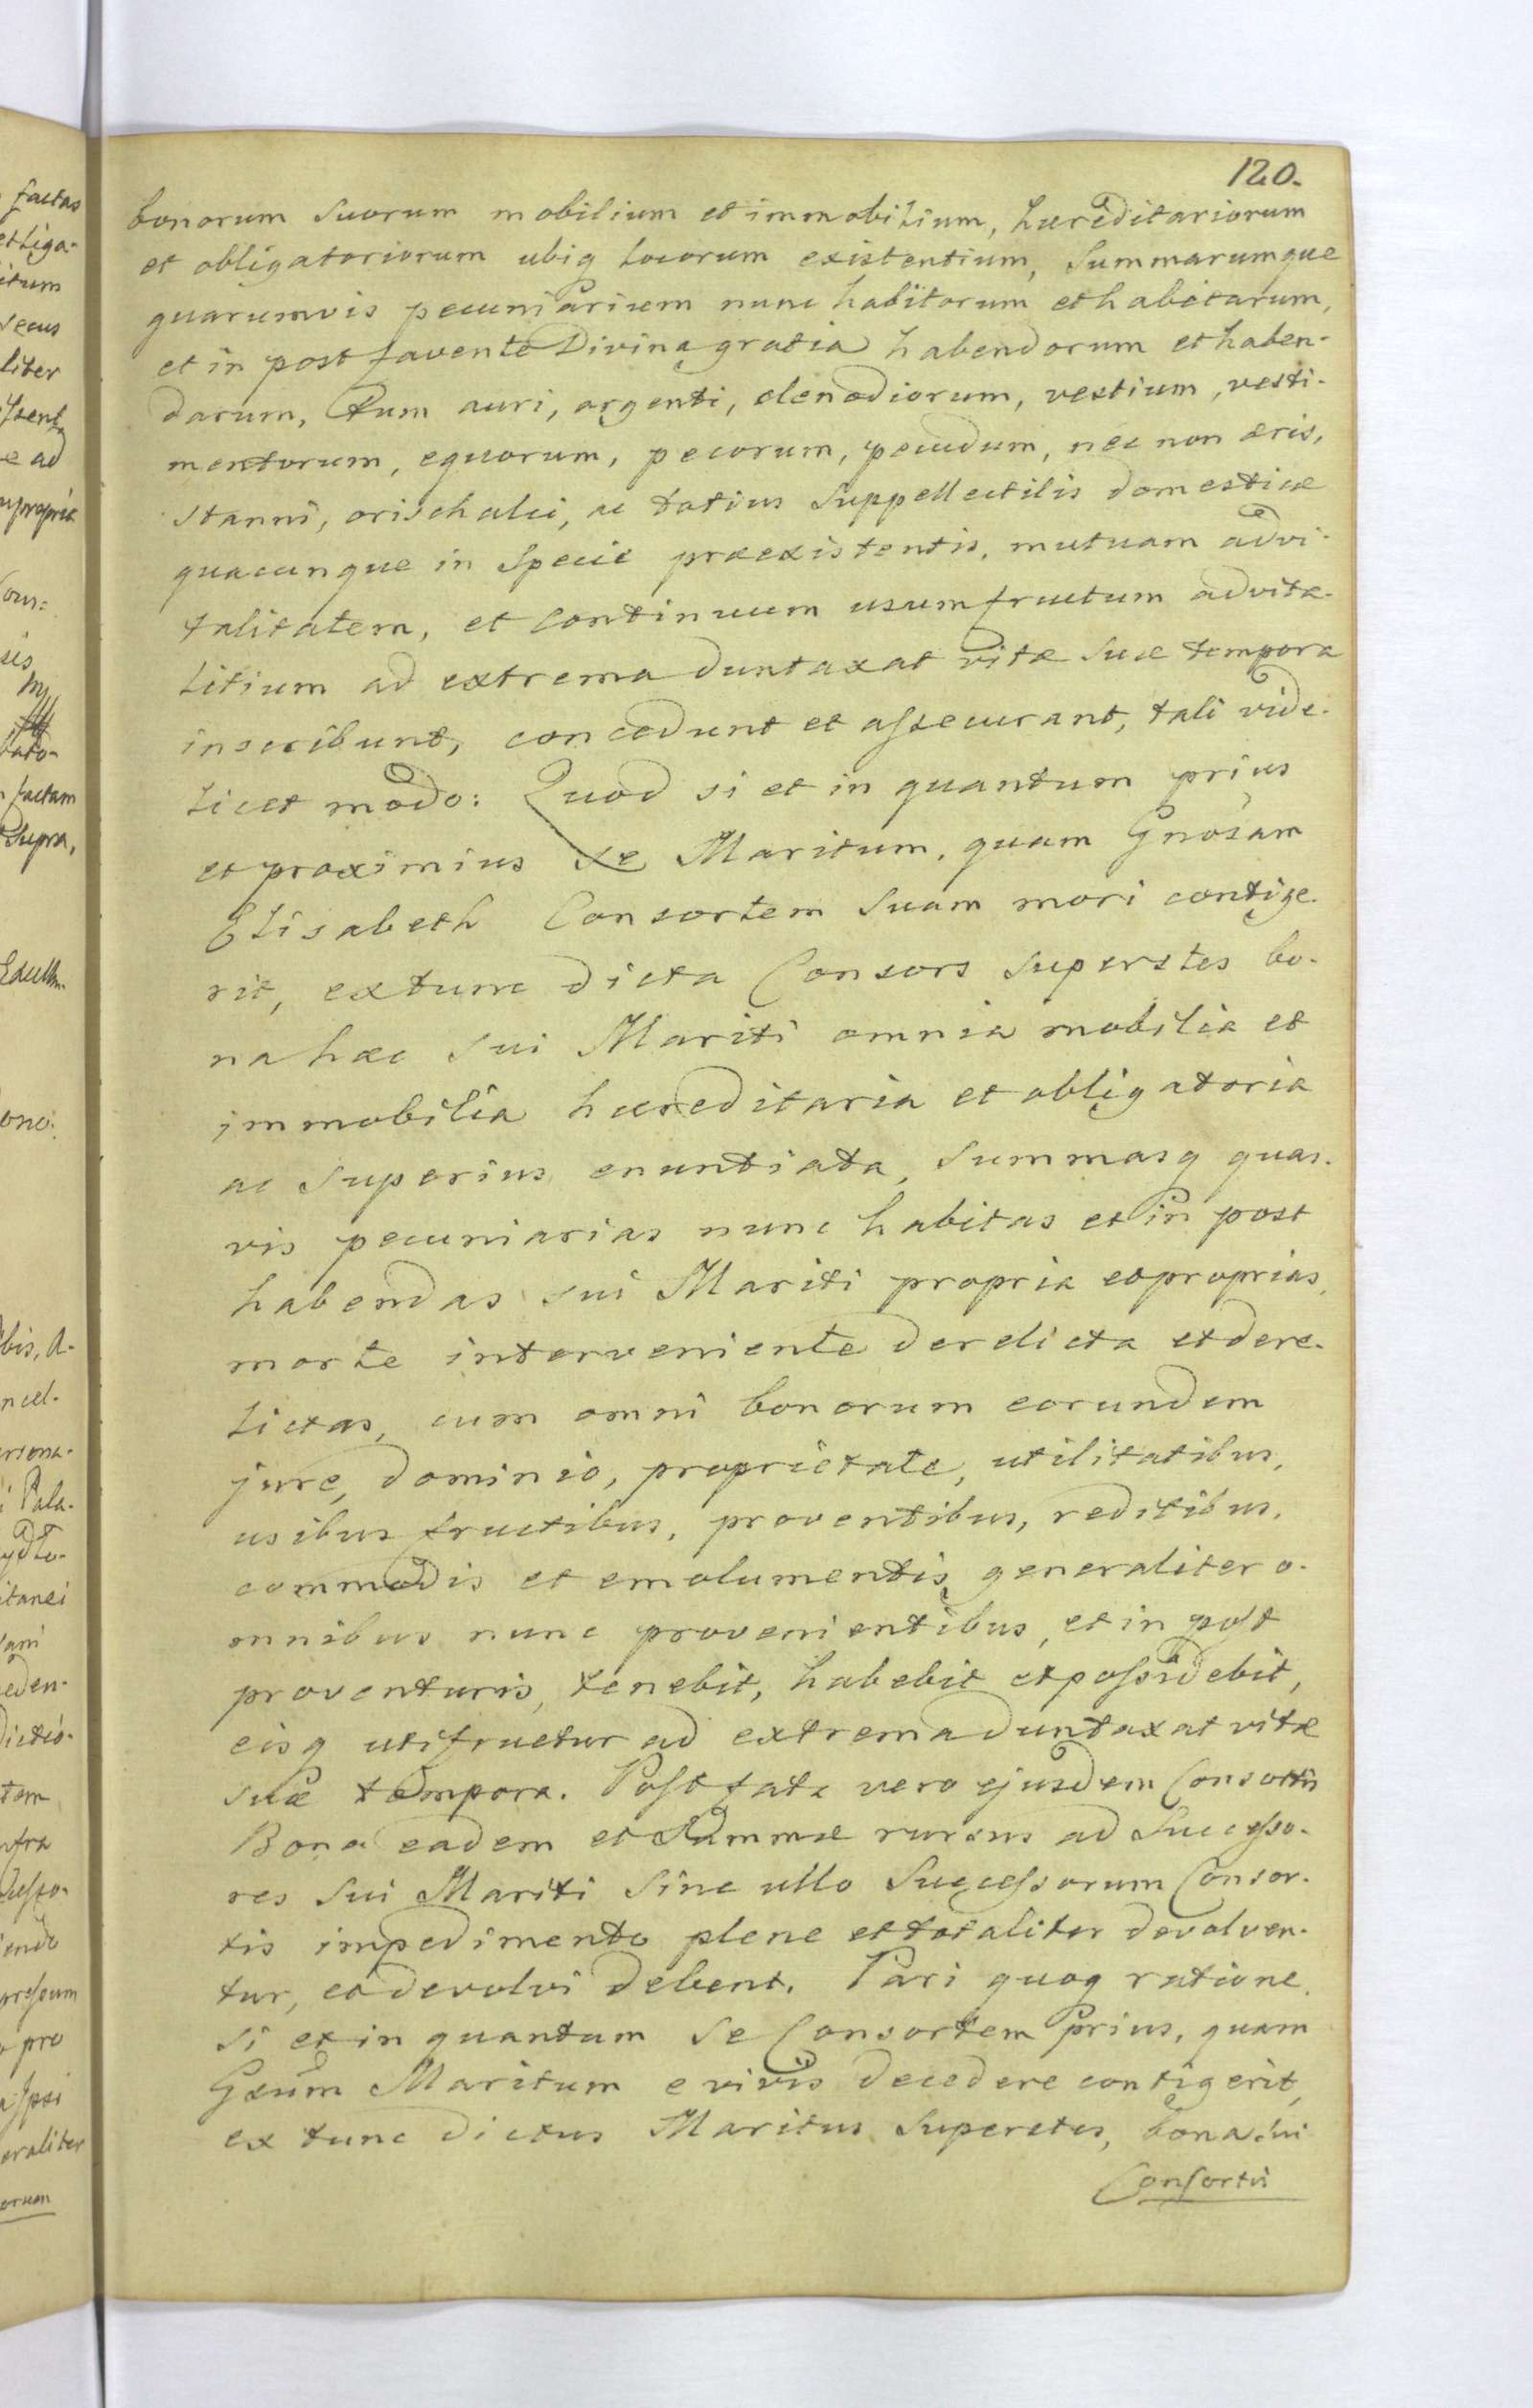 120.
bonorum suorum mobilium et immobilium, hæreditariorum
et obligatoriorum ubiq locorum existentium, Summarumque
quarumvis pecuniarium nunc habitorum et habitarum,
et in post favente Divina gratia habendorum et haben-
darum, tum auri, argenti, clenodiorum, vestium, vesti-
mentorum, equorum, pecorum, pecudum, nec non æris,
stanni, orischalci, ac totius Suppellectilis domesticæ
quacunque in Specie præexistentis, mutuam advi-
talitatem, et continuum usumfructum advita-
litium ad extrema duntaxat vitæ suæ tempora
inscribunt, concedunt et assecurant, tali vide-
licet modo: Quod si et in quantum prius
et proximius se Maritum, quam Gnosam
Elisabeth Consortem Suam mori contige-
rit, extunc dicta Consors Superstes bo-
na hæc sui Mariti omnia mobilia et
immobilia hæreditaria et obligatoria
ac superius enuntiata, Summasq quas-
vis pecuniarias nunc habitas et in post
habendas sui Mariti propria et proprias,
morte interveniente derelicta et dere-
lictas, cum omni bonorum eorundem
jure, dominio, proprietate, utilitatibus,
usibus fructibus, proventibus, reditibus,
commodis et emolumentis generaliter o-
mnibus nunc provenientibus, et in post
proventuris, tenebit, habebit et possidebit,
eisq utifruetur ad extrema duntaxat vitæ
suæ tempora. Post fata vero ejusdem Consortis
Bona eadem et Summæ rursus ad Successo-
res sui Mariti Sine ullo Successorum Consor-
tis impedimento plene et totaliter devolven-
tur, et devolvi debent. Pari quoq ratione,
si et in quantum se Consortem Prius, quam
Gsum Maritum e vivis decedere contigerit,
ex tunc dictus Maritus Superstes, bona sui
Consortis
factas
et liga-
secus
liter
e ad
sis
factam
supra,
bis, A-
ncel-
i Pala-
itanei
eden-
pro
eraliter
orum